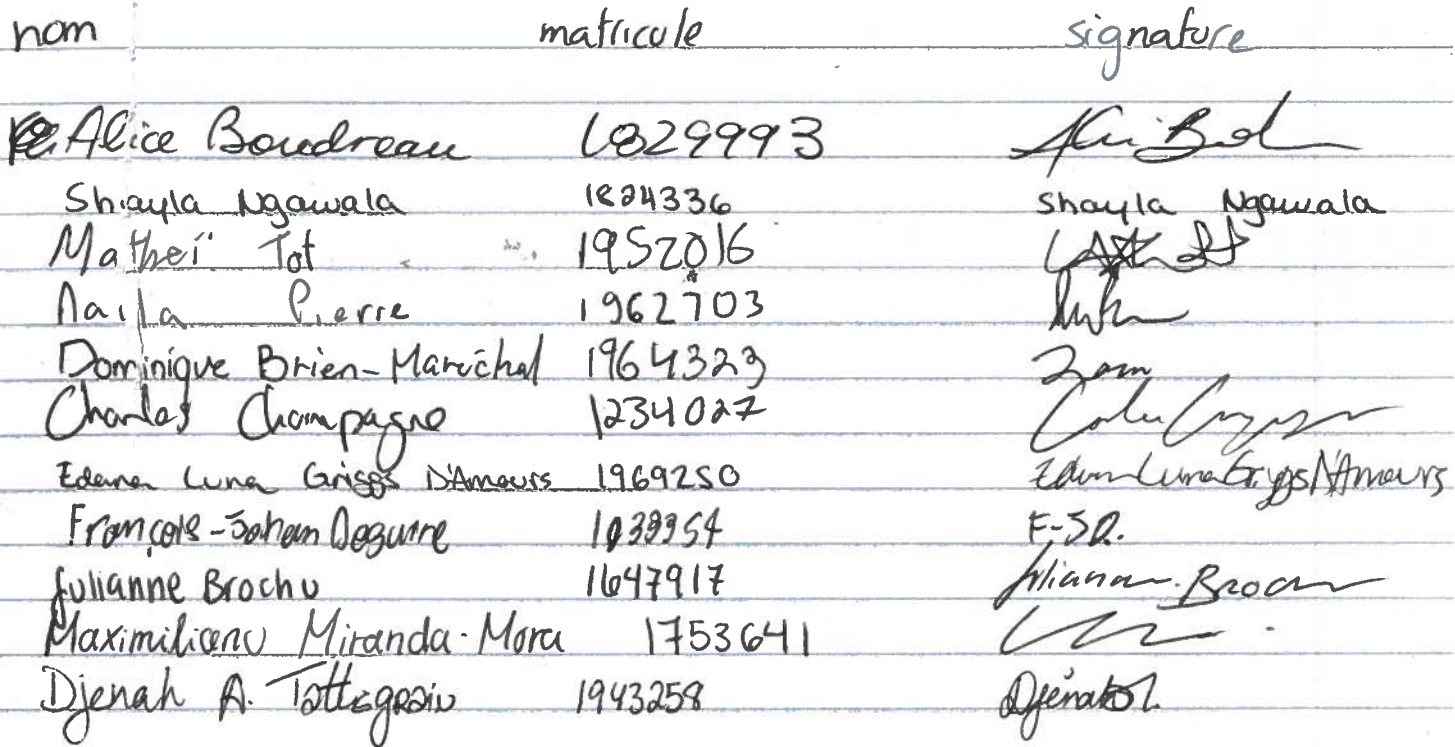 nom matricule signature
Alice Boudreau 1829993
Shayla Ngawala 1824336 Shayla Ngawala
Mathei Tot 1952016
Naila Pierre 1962703
Dominique Brien-Maréchal 1964323 Dom
Charles Champagne 1234027
Edena Luna Griggs D'Amours 1969250 Edena Luna Griggs D'Amours
François-Johan Deguire 1039954 F-JD.
Julianne Brochu 1647917 Julianne Brochu
Maximiliano Miranda-Mora 1753641
Djenah A. 1943258